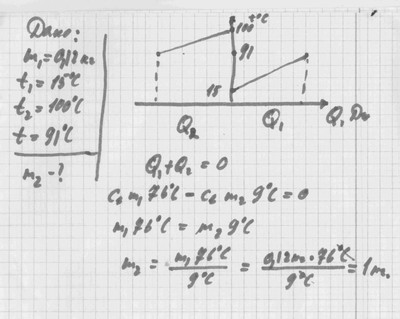 Дано:
m₁=0,12 кг
t₁=15°C
t₂=100°C
t=91°C
m₂-?
t°C
100
91
15
Q₂
Q₁
Q, Дж
Q₁+Q₂=0
Cв m₁ 76°C - Cв m₂ 9°C = 0
m₁ 76°C = m₂ 9°C
m₂ = m₁ 76°C / 9°C = 0,12кг · 76°C / 9°C = 1 кг.